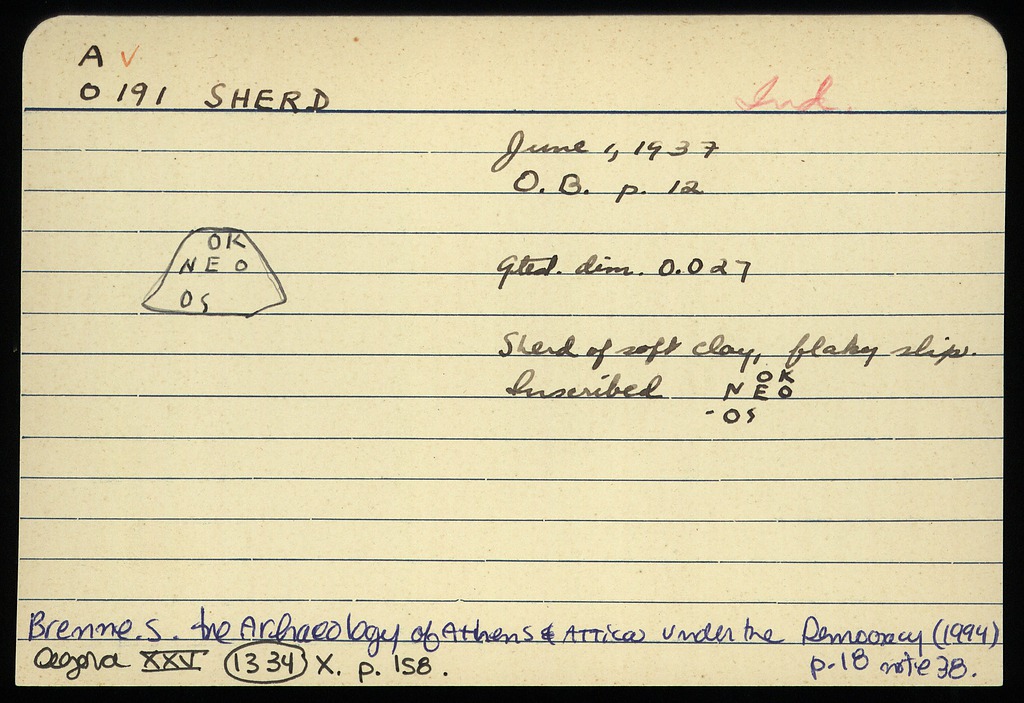 A ✓
O 191 SHERD
Ind.
June 1, 1937
O. B. p. 12
OK
NEO
OS
Gtest. dim. 0.027
Sherd of soft clay, flaky slip.
OK
Inscribed NEO
-OS
Brenne. S. the Archaeology of Athens & Attica under the Democracy (1994)
p.18 note 38.
Agora XXV 1334 X. p. 158.